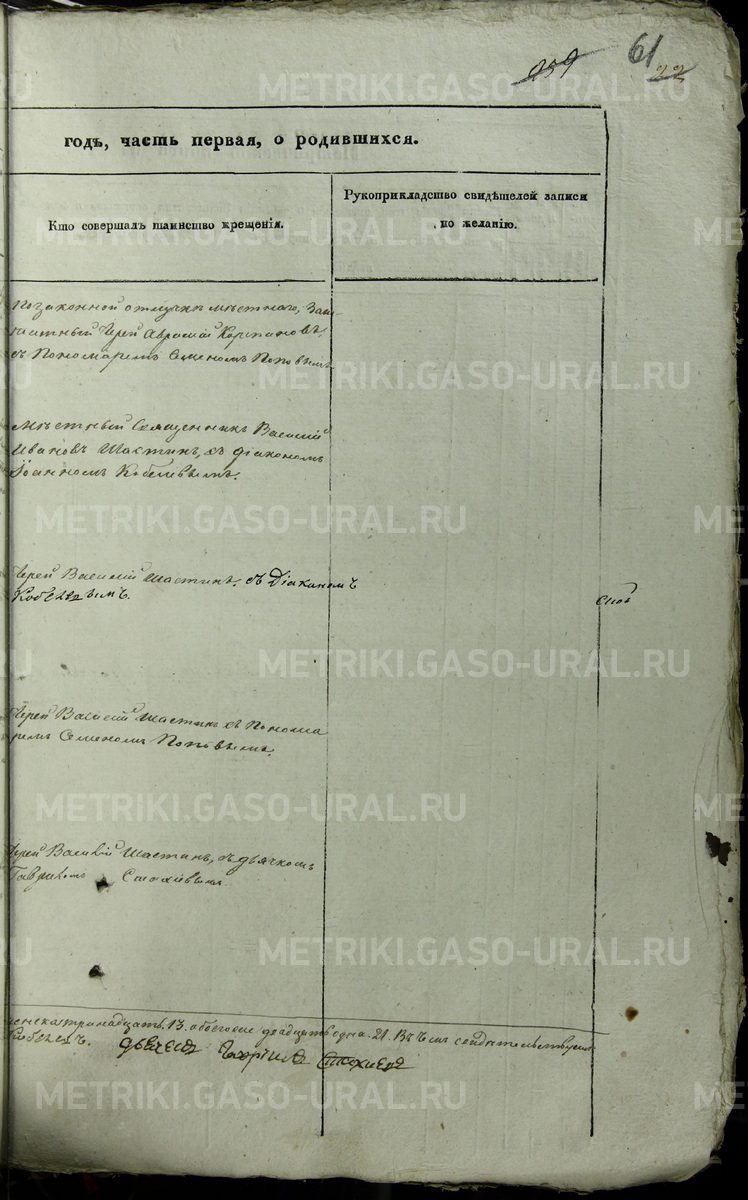 259 61 22
годъ, часть первая, о родившихся.
Кто совершалъ таинство крещенія.
Рукоприкладство свидѣтелей записи
по желанію.
По законной отлучкѣ мѣстнаго, Заш-
татный Іерей Аврамій
съ Пономаремъ Семеномъ Поповымъ
Мѣстный Священникъ Василий
Ивановъ Шастинъ, съ Діакономъ
Іоанномъ Кобелевымъ.
Іерей Василий Шастинъ, съ Діакономъ
Кобелевымъ.
Іерей Василий Шастинъ съ Понома
ремъ Семеномъ Поповымъ.
Іерей Василий Шастинъ, съ дьячкомъ
Гавриломъ Стахіевымъ.
женска тринадцать. 13. обоего двадцать одна. 21. Въ чемъ
Кобелевъ. дьячекъ Гаврила
METRIKI.GASO-URAL.RU